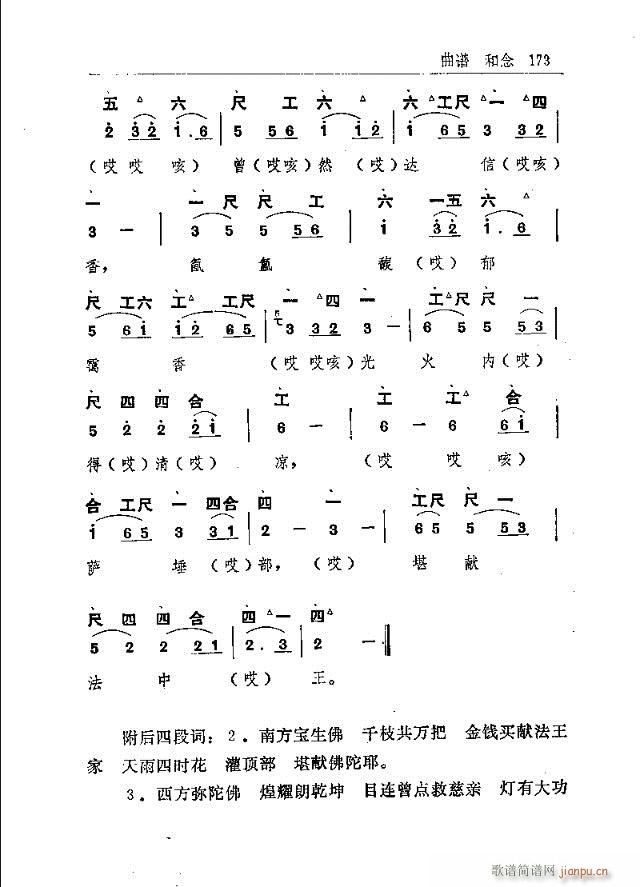 曲谱 和念 173
五 △ 六 尺 工 六 △ 六 △ 工尺 △ 一 △ 四
2 32 1.6 | 5 56 1 12 | 1 65 3 32 |
(哎 哎 咳) 曾(哎咳)然 (哎)达 信(哎咳)
一 一 尺 尺 工 六 一五 六 △
3 — | 3 5 5 56 | 1 32 1.6 |
香, 氤 氲 馥 (哎) 郁
尺 工六 工 △ 工尺 一 △ 四 一 工 △ 尺 尺 一
5 61 12 65 | 3 32 3 — | 6 5 5 53 |
霭 香 (哎 哎咳)光 火 内(哎)
尺 四 四 合 工 工 工 △ 合
5 2 2 21 | 6 — 6 — | 6 6 6 61 |
得(哎)清(哎) 凉, (哎 哎 咳)
合 工尺 一 四合 四 一 工尺 尺 一
1 65 3 31 | 2 — 3 — | 65 5 53 |
萨 埵 (哎)部, (哎) 堪 献
尺 四 四 合 四 △ 一 四 △
5 2 2 21 | 2.3 | 2 —
法 中 (哎) 王。
附后四段词: 2. 南方宝生佛 千枝共万把 金钱买献法王
家 天雨四时花 灌顶部 堪献佛陀耶。
3. 西方弥陀佛 煌耀朗乾坤 目连曾点救慈亲 灯有大功
歌谱简谱网
jianpu.cn